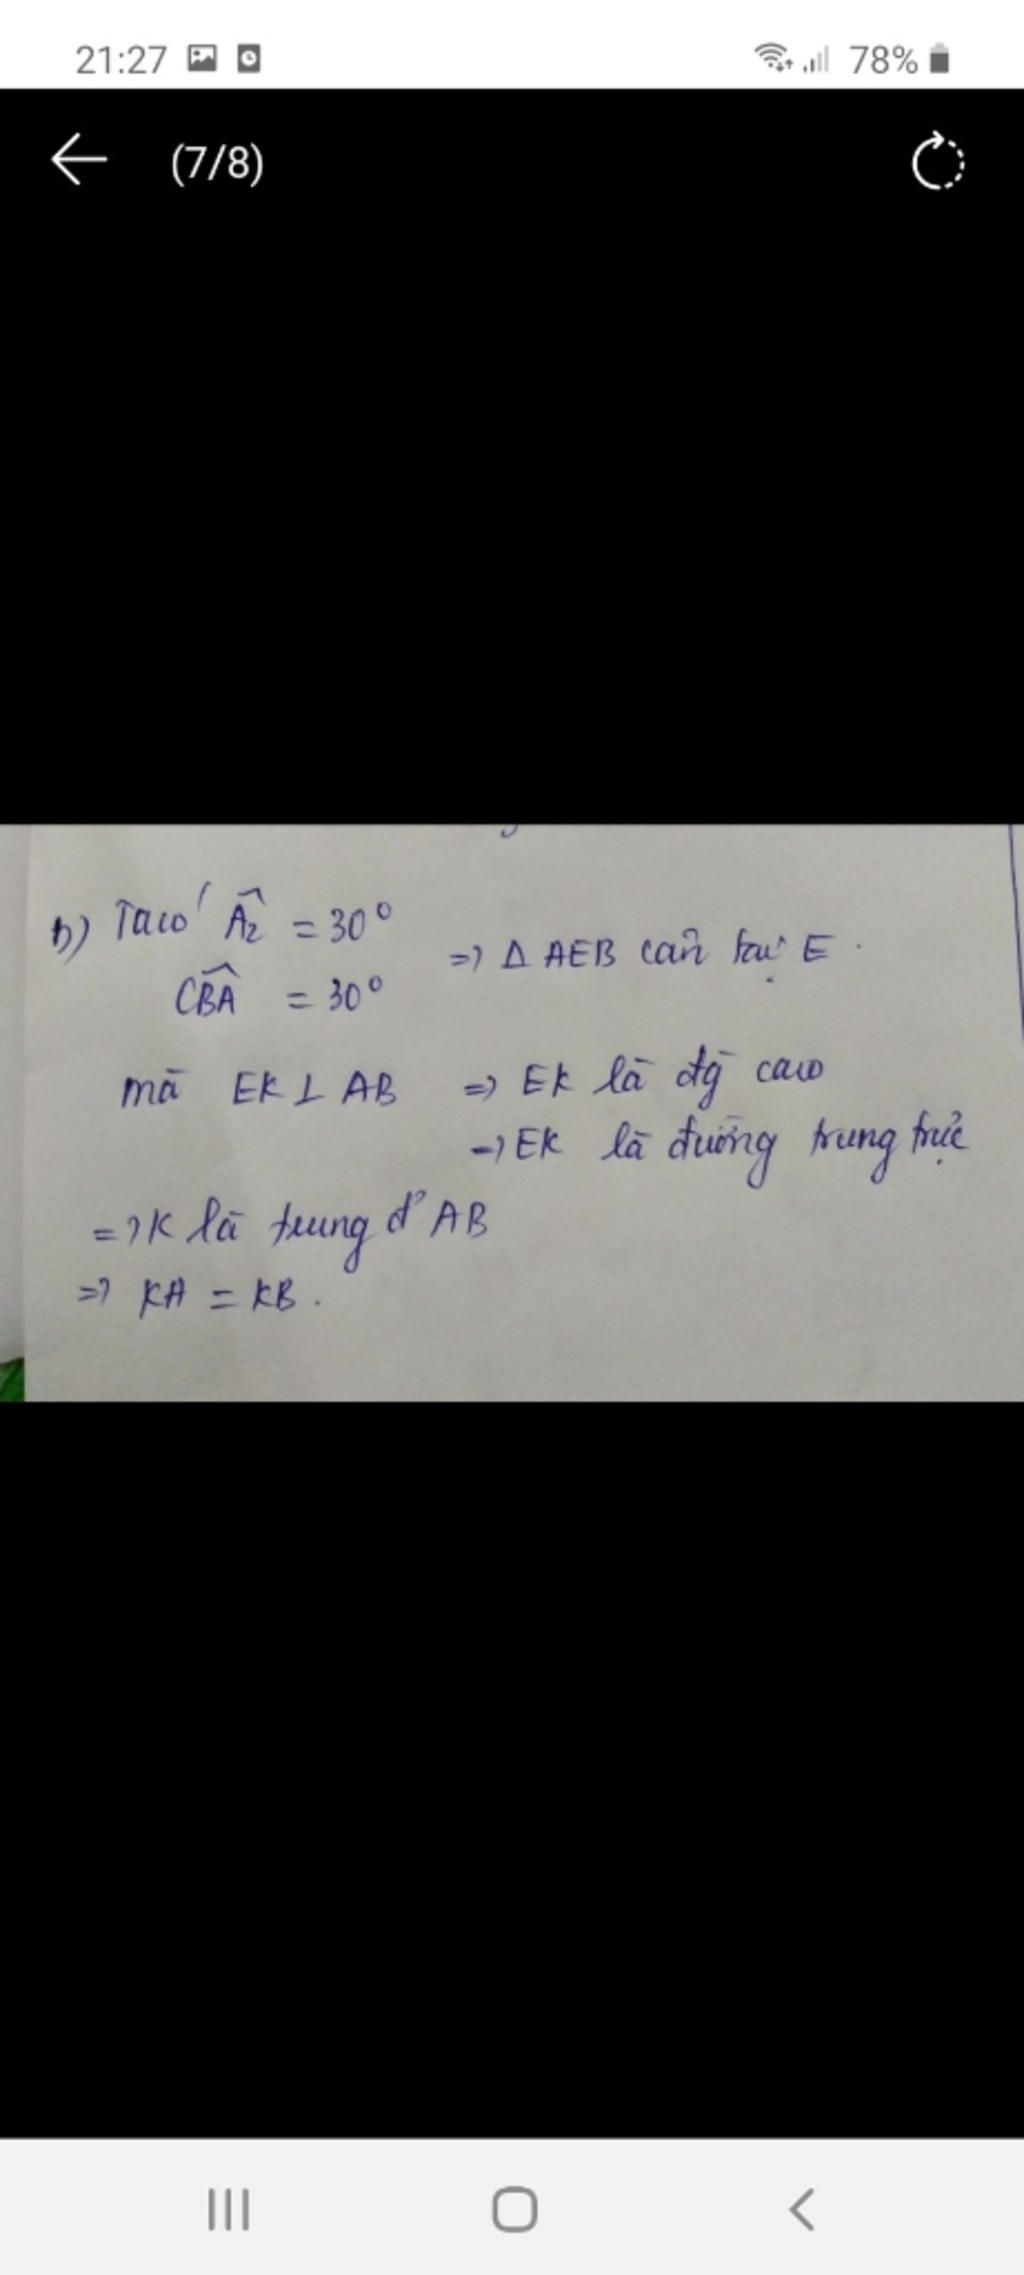 21:27 78%
(7/8)
b) Ta có Â₂ = 30°
CBA = 30° => Δ AEB cân tại E.
mà EK ⊥ AB => EK là đg cao
=> EK là đường trung trực
=> K là trung đ' AB
=> KA = KB.